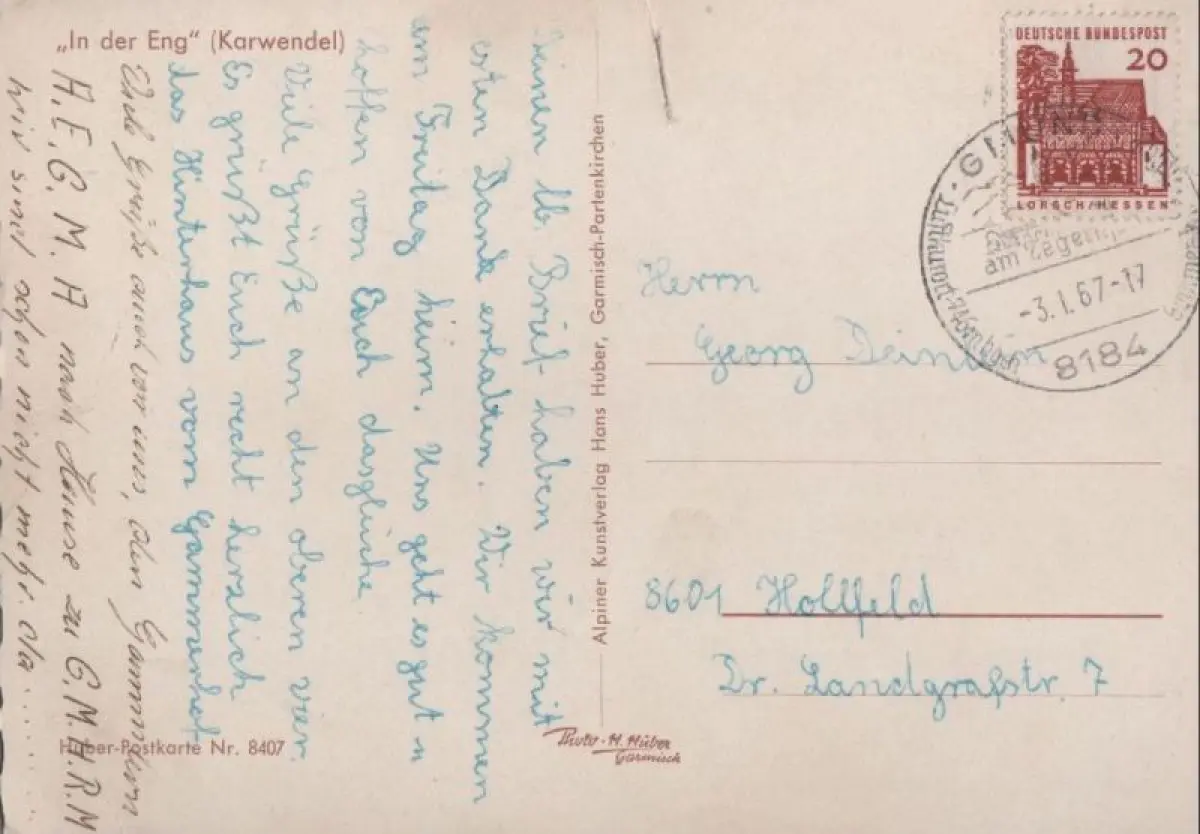 „In der Eng“ (Karwendel)
Deinen lb. Brief haben wir mit
esten Dank erhalten. Wir kommen
am Freitag heim. Uns geht es gut u
hoffen von Euch dasgleiche.
Viele Grüße an den oberen vier.
Es grüßt Euch recht herzlich
das Hinterhaus vom Gammerhof
Viele Grüße auch von uns, den
A. E. G. M. A nach Hause zu G.M.H.R.M
wir sind schon nicht mehr da.......
Huber-Postkarte Nr. 8407
Alpiner Kunstverlag Hans Huber, Garmisch-Partenkirchen
Photo-H. Huber
Garmisch
DEUTSCHE BUNDESPOST
20
LORSCH/HESSEN
am Tegernsee
-3.1.67-17
8184
Herrn
Georg
8601 Hollfeld
Dr. Landgrafstr. 7